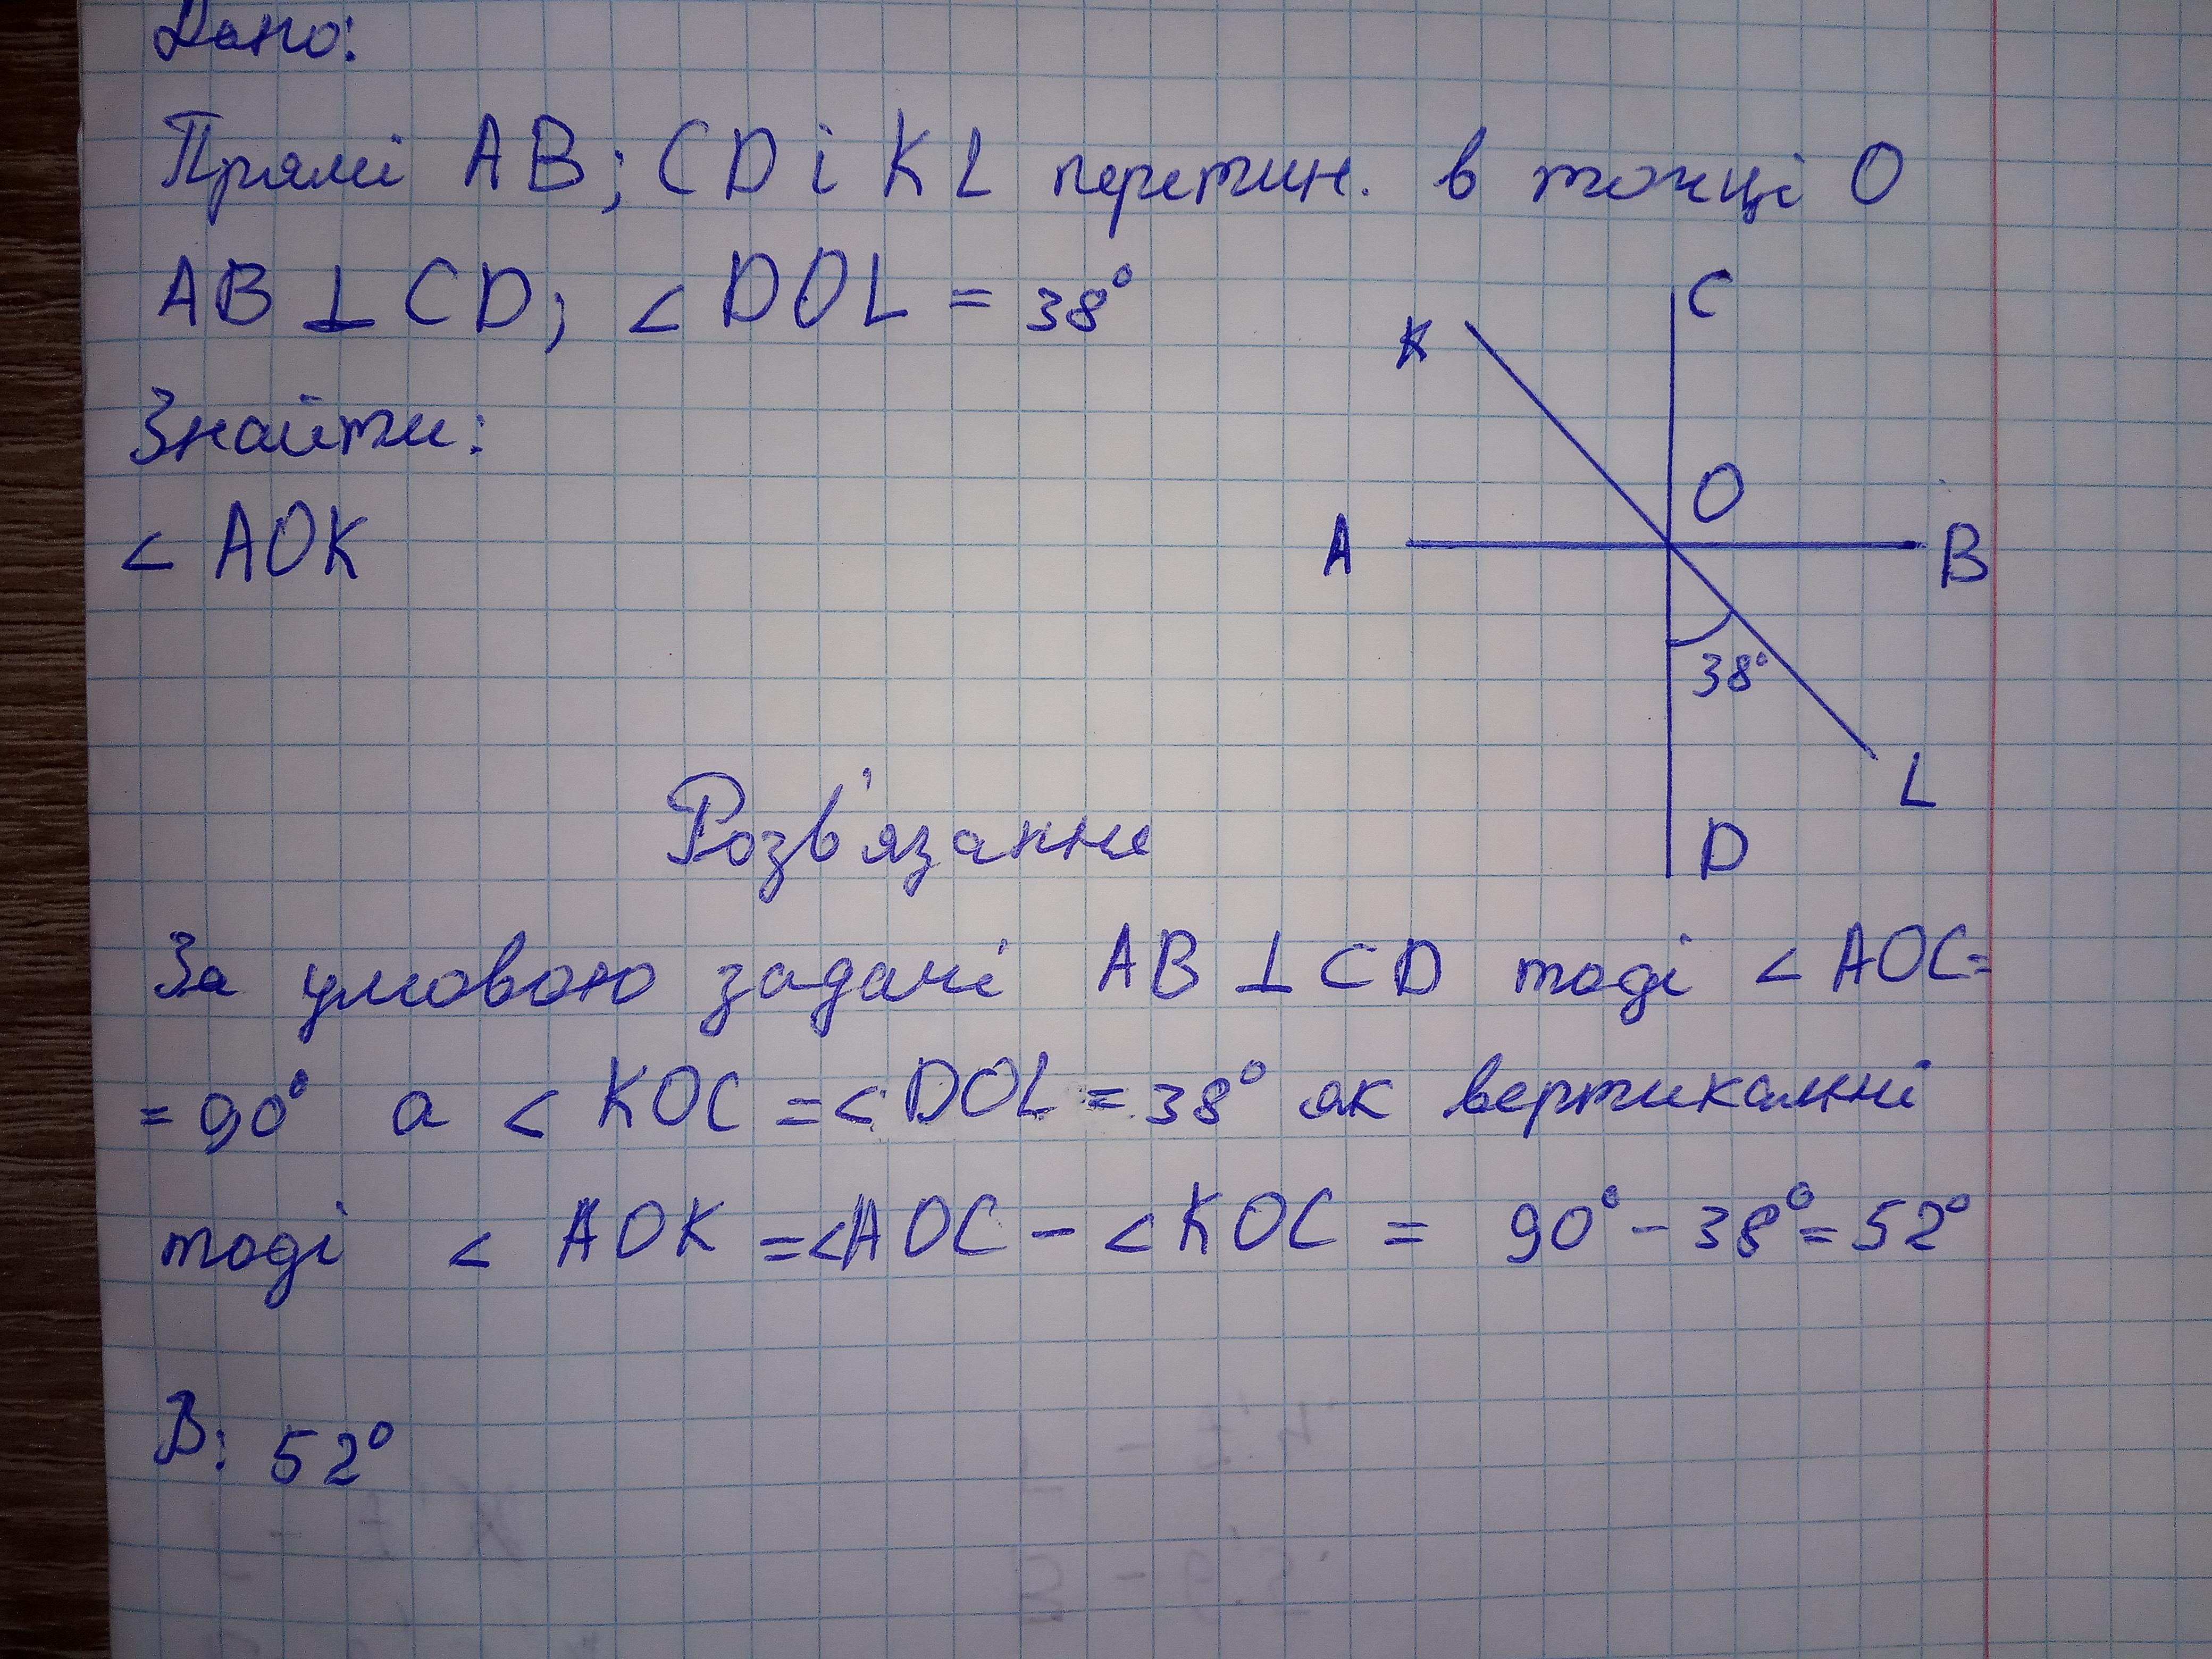 Дано:
Прямі AB; CD і KL перетин. в точці O
AB ⊥ CD; < DOL = 38°
Знайти:
< AOK
C
K
O
A
B
38°
L
D
Розв'язання
За умовою задачі AB ⊥ CD тоді < AOC=
= 90° а < KOC =< DOL = 38° як вертикальні
тоді < AOK =< AOC - < KOC = 90° - 38° = 52°
В: 52°